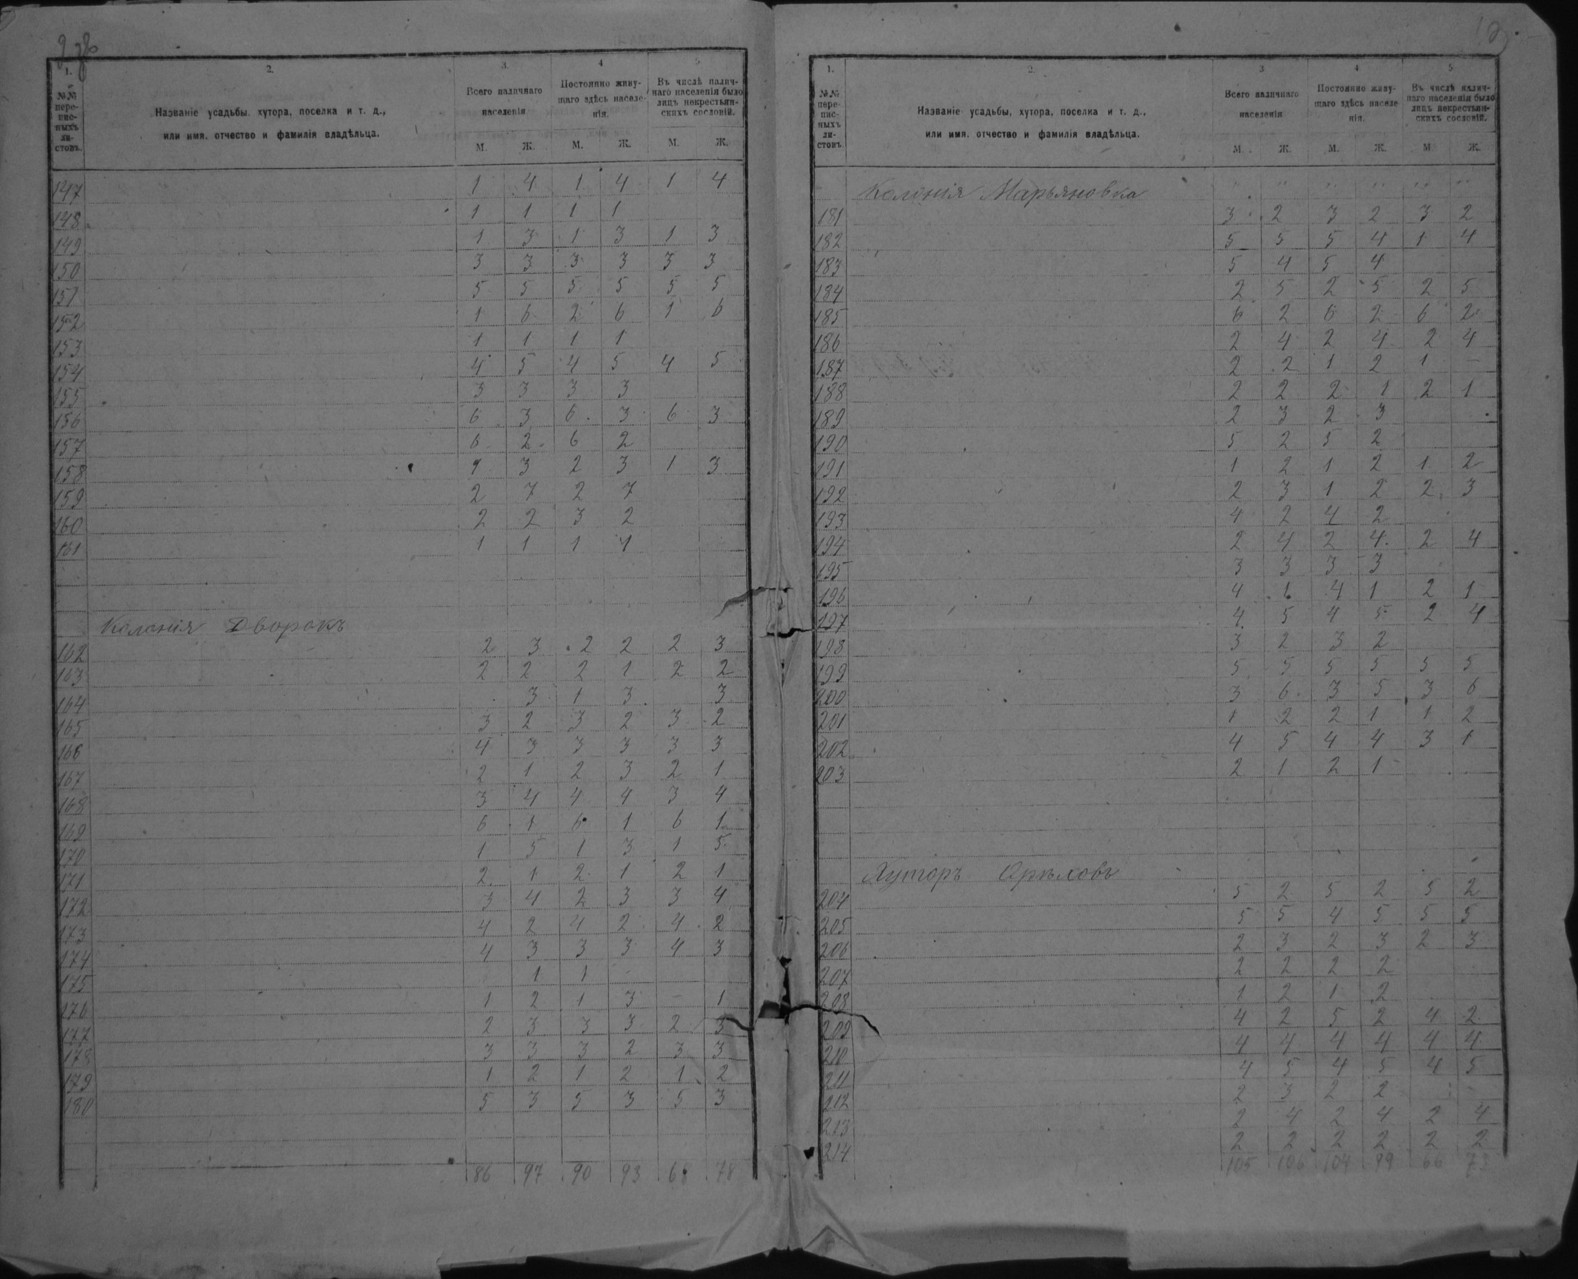 1.
№№ пере-пис-ныхъ ли-стовъ.
2.
Названіе усадьбы, хутора, поселка и т. д.,
или имя, отчество и фамилія владѣльца.
3.
Всего наличнаго
населенія
4
Постоянно живу-
щаго здѣсь населе-
нія.
Въ числѣ налич-
наго населенія было
лицъ некрестьян-
скихъ сословій.
М. Ж. М. Ж. М. Ж.
147 1 4 1 4 1 4
148 1 1 1 1
149 1 3 1 3 1 3
150 3 3 3 3 3 3
151 5 5 5 5 5 5
152 1 6 2 6 1 6
153 1 1 1 1
154 4 5 4 5 4 5
155 3 3 3 3
156 6 3 6 3 6 3
157 6 2 6 2
158 3 2 3 1 3
159 2 7 2 7
160 2 2 3 2
161 1 1 1 1
Колонія Дворокъ
162 2 3 2 2 2 3
163 2 2 2 1 2 2
164 3 1 3 3
165 3 2 3 2 3 2
166 4 3 3 3 3 3
167 2 1 2 3 2 1
168 3 4 4 4 3 4
169 6 1 6 1 6 1
170 1 5 1 3 1 5
171 2 1 2 1 2 1
172 3 4 2 3 3 4
173 4 2 4 2 4 2
174 4 3 3 3 4 3
175 1 1
176 1 2 1 3 - 1
177 2 3 3 3 2 3
178 3 3 3 2 3 3
179 1 2 1 2 1 2
180 5 3 5 3 5 3
86 97 90 93
1.
№№ пере-пис-ныхъ ли-стовъ.
2.
Названіе усадьбы, хутора, поселка и т. д.,
или имя, отчество и фамилія владѣльца.
3
Всего наличнаго
населенія
4
Постоянно живу-
щаго здѣсь населе-
нія.
5
Въ числѣ налич-
наго населенія было
лицъ некрестьян-
скихъ сословій.
М. Ж. М. Ж. М. Ж.
Колонія Марьяновка
181 3 2 3 2 3 2
182 5 5 5 4 1 4
183 5 4 5 4
184 2 5 2 5 2 5
185 6 2 6 2 6 2
186 2 4 2 4 2 4
187 2 2 1 2 1 -
188 2 2 2 1 2 1
189 2 3 2 3
190 5 2 5 2
191 1 2 1 2 1 2
192 2 3 1 2 2 3
193 4 2 4 2
194 2 4 2 4 2 4
195 3 3 3 3
196 4 1 4 1 2 1
197 4 5 4 5 2 4
198 3 2 3 2
199 5 5 5 5 5 5
200 3 6 3 5 3 6
201 1 2 2 1 1 2
202 4 5 4 4 3 1
203 2 1 2 1
Хуторъ Орѣховъ
204 5 2 5 2 5 2
205 5 5 4 5 5 5
206 2 3 2 3 2 3
207 2 2 2 2
208 1 2 1 2
209 4 2 5 2 4 2
210 4 4 4 4 4 4
211 4 5 4 5 4 5
212 2 3 2 2
213 2 4 2 4 2 4
214 2 2 2 2 2 2
105 106 104 99 66